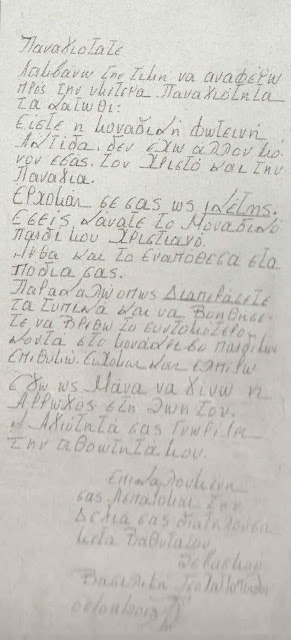 Παναγιότατε
Λαμβάνω την τιμή να αναφέρω
προς την υμετέρα Παναγιότητα
τα κάτωθι:
Είστε η μοναδική φωτεινή
Ακτίδα. δεν έχω άλλον μό
νον εσάς. τον Χριστό και την
Παναγία.
Έρχομαι σε σας ως ικέτης.
Εσείς κάνατε το Μοναδικό
παιδί μου Χριστιανό.
Ήρθα και το Εναπόθεσα στα
πόδια σας.
Παρακαλώ όπως Διαπεράσετε
τα τυπικά και να βοηθήσε
τε να βρεθώ το συντομότερο
κοντά στο μονάκριβο παιδί μου
Επιθυμώ. Εύχομαι και ελπίζω
Εγώ ως Μάνα να γίνω η
Αρρωγός στη ζωή του.
η Αγιότητά σας γνωρίζει
την αθωότητά μου.
Επικαλούμενη
σας Ασπάζομαι την
Δεξιά σας διατελούσα
μετά Βαθυτάτου
Σεβασμού
Βασιλική